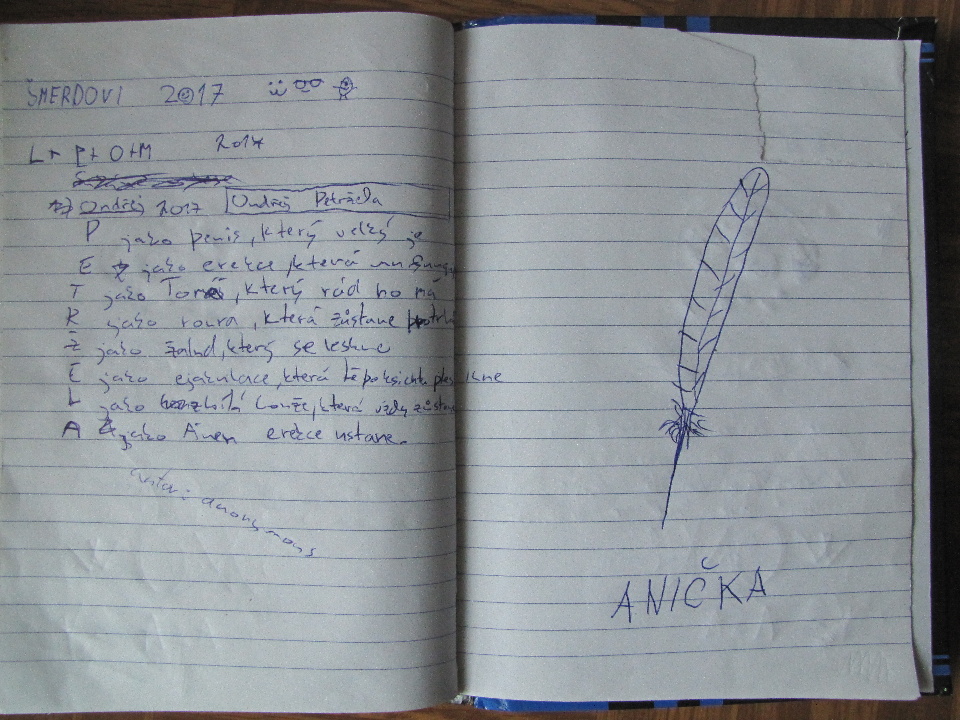 ŠMERDOVI 2017
L + P + O + M 2017
Ondřej 2017 Ondřej Petržela
P jako penis, který velký je
E jako erekce, která
T jako Tomáš, který rád ho má
R jako roura, která zůstane
Ž jako žalud, který se leskne
E jako ejakulace, která tě po ksichtě pleskne
L jako louže, která vždy zůstane
A jako Ámen erekce ustane.
autor: anonymous
ANIČKA